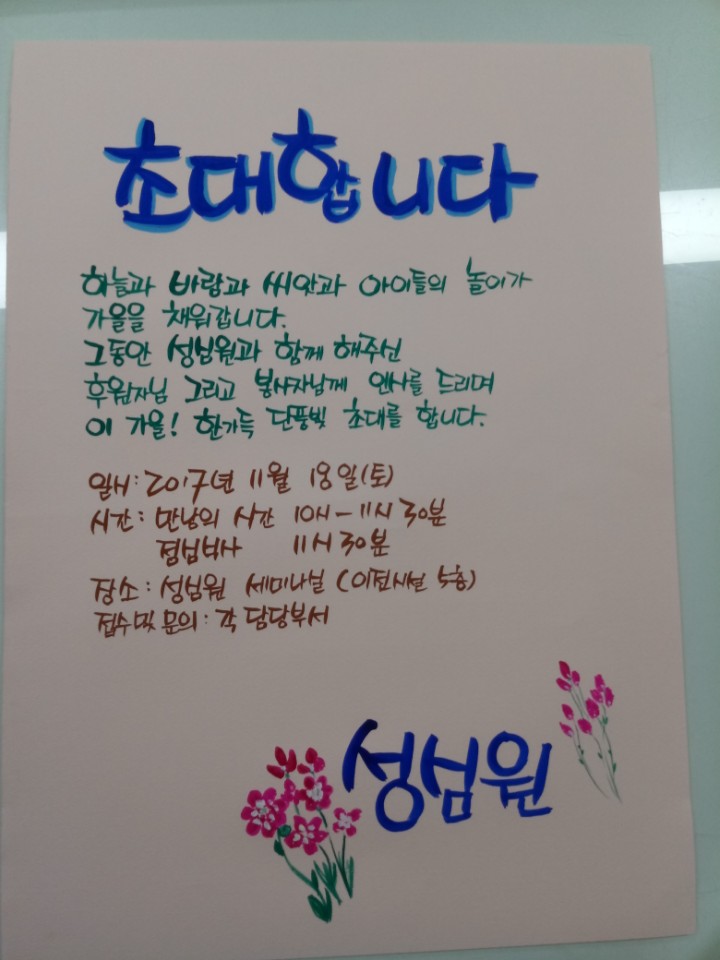 초대합니다
하늘과 바람과 씨앗과 아이들의 놀이가
가을을 채워갑니다.
그동안 성심원과 함께 해주신
후원자님 그리고 봉사자님께 인사를 드리며
이 가을! 한가득 단풍빛 초대를 합니다.
일시: 2017년 11월 18일(토)
시간: 만남의 시간 10시-11시 30분
점심식사 11시 30분
장소: 성심원 세미나실 (이전시설 5층)
접수및 문의: 각 담당부서
성심원